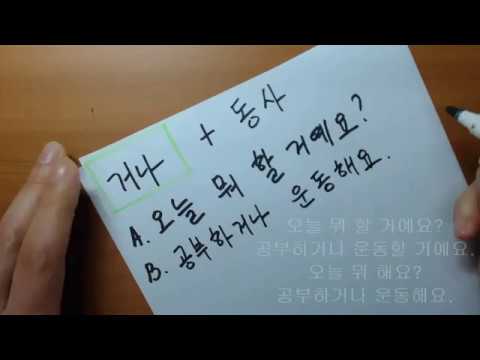 거나 + 동사
A. 오늘 뭐 할 거예요?
B. 공부하거나 운동해요.
오늘 뭐 할 거예요?
공부하거나 운동할 거예요.
오늘 뭐 해요?
공부하거나 운동해요.